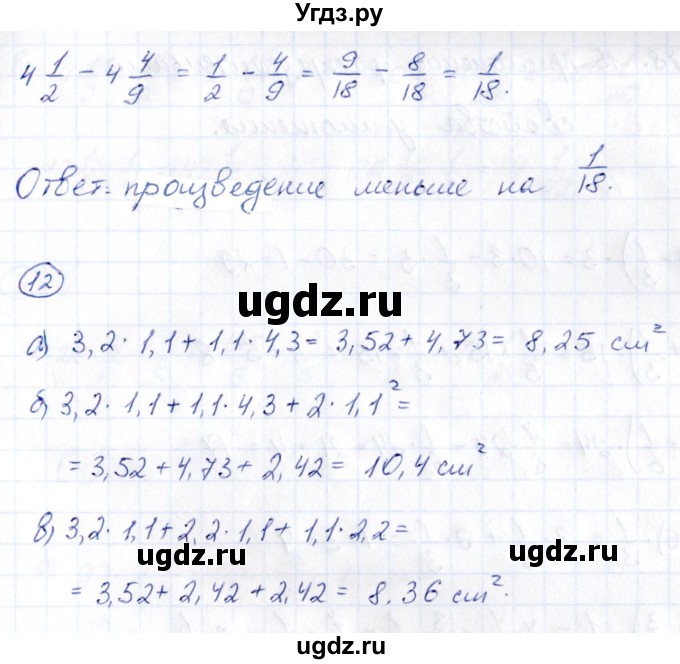 Угдз.ру
4 1/2 − 4 4/9 = 1/2 − 4/9 = 9/18 − 8/18 = 1/18.
Ответ: произведение меньше на 1/18.
12
ugdz.ru
а) 3,2 · 1,1 + 1,1 · 4,3 = 3,52 + 4,73 = 8,25 см²
б) 3,2 · 1,1 + 1,1 · 4,3 + 2 · 1,1² =
= 3,52 + 4,73 + 2,42 = 10,4 см²
ugdz.ru
в) 3,2 · 1,1 + 2,2 · 1,1 + 1,1 · 2,2 =
ugdz.ru ugdz.ru
= 3,52 + 2,42 + 2,42 = 8,36 см².
ugdz.ru